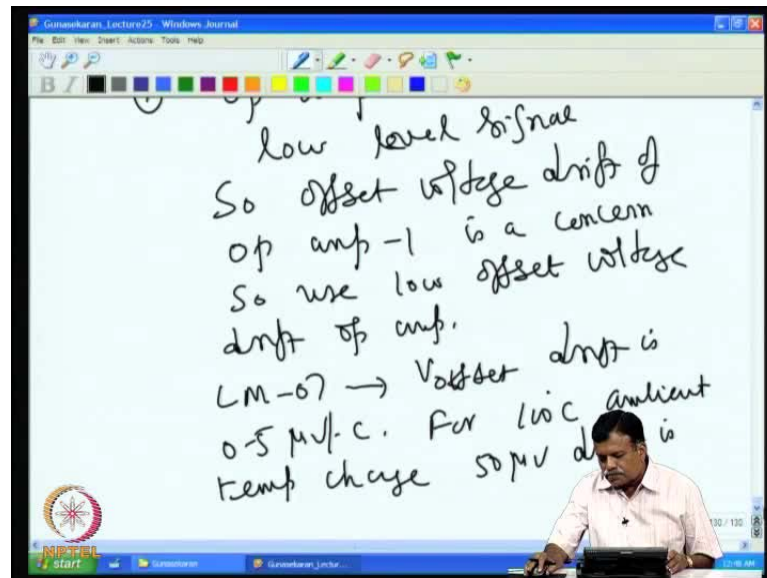 Gunasekaran_Lecture25 - Windows Journal
File Edit View Insert Actions Tools Help
B I
low level signal
So offset voltage drift of
op amp-1 is a concern
So use low offset voltage
drift op amp.
LM-07 → Voffset drift is
0.5 μV/°C. For 100C ambient
temp change 50 μV is
130 / 130
NPTEL
start
Gunasekaran
Gunasekaran_Lectur...
12:48 AM